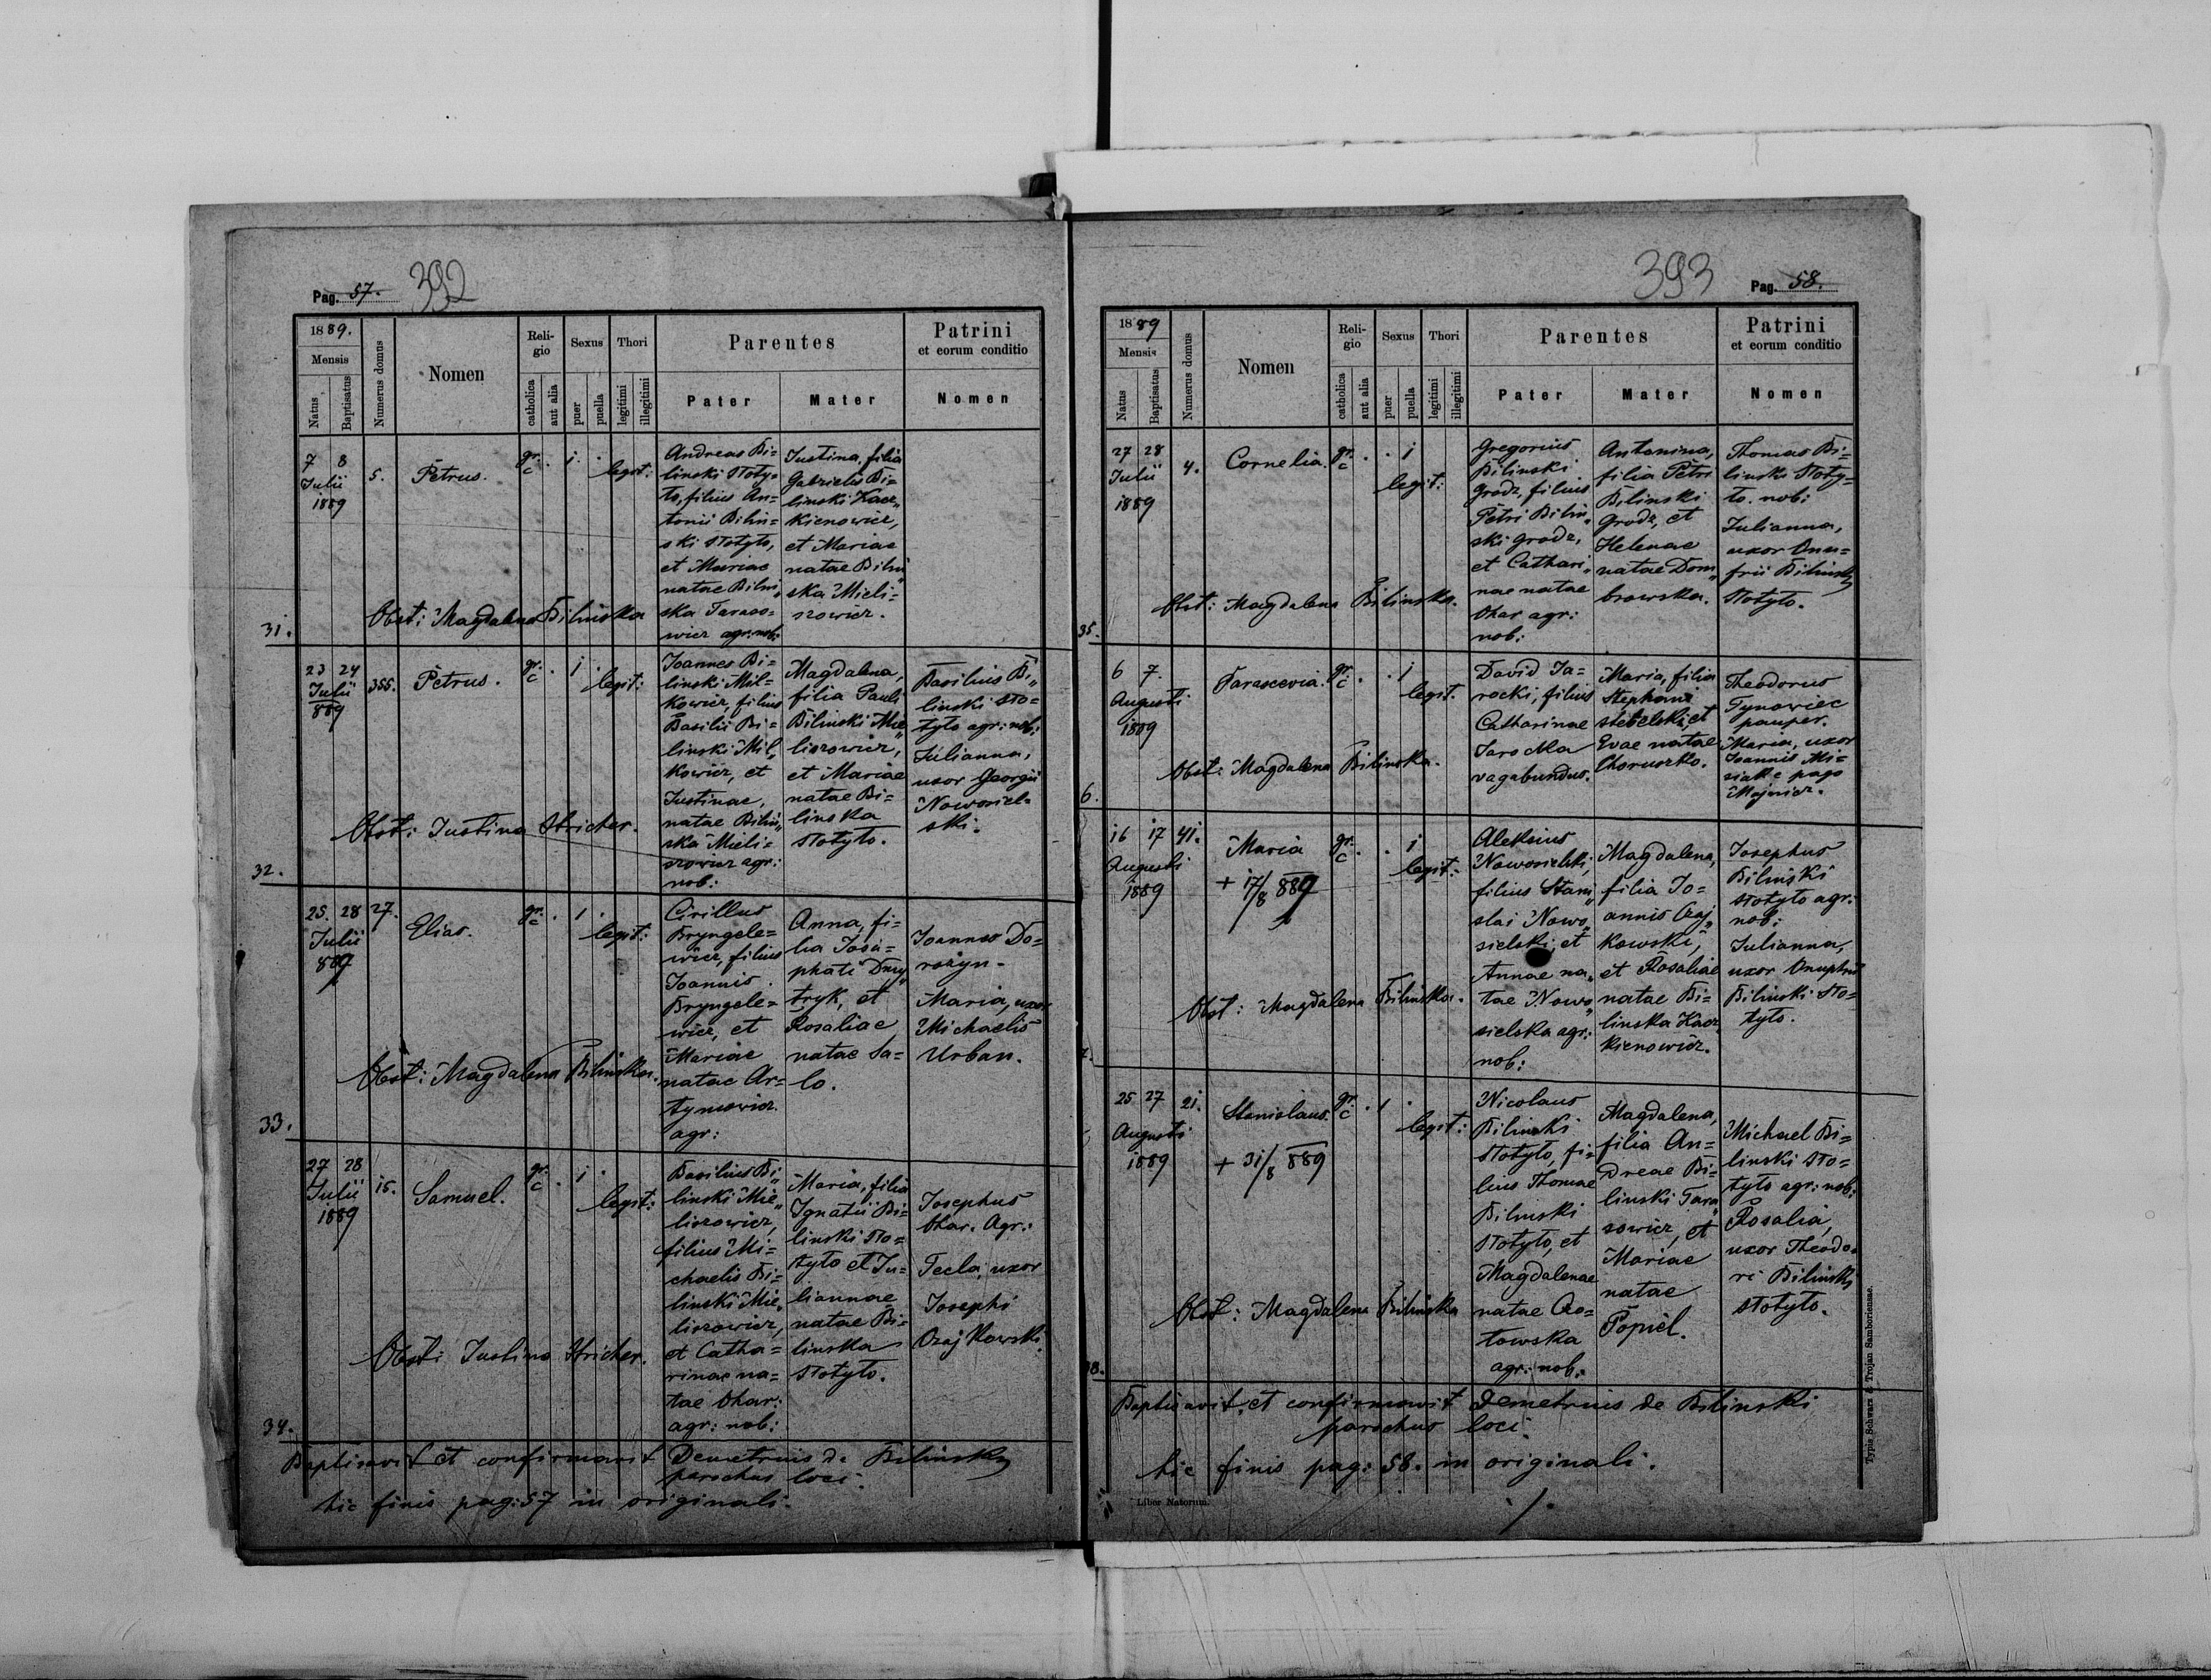 Pag. 57. 392
1889.
Mensis
Natus
Baptisatus
Numerus domus
Nomen
Reli-
gio
catholica
aut alia
Sexus
puer
puella
Thori
legitimi
illegitimi
Parentes
Pater
Mater
Patrini
et eorum conditio
Nomen
31.
7 8
Julii
1889
5.
Petrus.
gr.
c
. 1 .
legit:
Andreas Bi=
linski Stoty=
to, filius An=
tonii Bilin=
ski Stotyto,
et Mariae
natae Bilin„
ska Taraso=
wicz agr: nob:
Justina, filia
Gabrielis Bi=
linski Kacz„
kienowicz,
et Mariae
natae Bilin„
ska Mieli=
szowicz.
Obst: Magdalena Bilinska
32.
23 24
Julii
889
355.
Petrus.
gr.
c
. 1 .
legit:
Joannes Bi=
linski Mil=
kowicz, filius
Basilii Bi=
linski Mil„
kowicz, et
Justinae,
natae Bilin„
ska Mieli=
szowicz agr:
nob:
Magdalena,
filia Pauli
Bilinski Mie„
liszowicz,
et Mariae
natae Bi=
linska
Stotyto.
Basilius Bi„
linski Sto=
tyto agr: nob:
Julianna,
uxor Georgii
Nowosiel=
ski.
Obst: Justina Stricher.
33.
25. 28
Julii
889
27.
Elias.
gr.
c
. 1 .
legit:
Cirillus
Bryngele=
wicz, filius
Joannis
Bryngele=
wicz, et
Mariae
natae Ar=
tymowicz
agr:
Anna, fi=
lia Josa=
phati Dmy„
tryk, et
Rosaliae
natae Sa=
lo.
Joannes Do=
rożyn-
Maria, uxor
Michaelis
Urban.
Obst: Magdalena Bilinska.
34.
27 28
Julii
1889
15.
Samuel.
gr.
c
. 1 .
legit:
Basilius Bi„
linski Mie„
liszowicz,
filius Mi=
chaelis Bi=
linski Mie„
liszowicz,
et Catha=
rinae na=
tae Ohar:
agr: nob:
Maria, filia
Ignatii Bi=
linski Sto=
tyto et Ju=
liannae
natae Bi=
linska
Stotyto.
Josephus
Ohar. Agr:
Tecla, uxor
Josephi
Czajkowski.
Obst: Justina Stricher.
Baptisavit et confirmavit Demetrius de Bilinski
parochus loci.
hic finis pag: 57 in originali.
393 Pag. 58.
1889
Mensis
Natus
Baptisatus
Numerus domus
Nomen
Reli-
gio
catholica
aut alia
Sexus
puer
puella
Thori
legitimi
illegitimi
Parentes
Pater
Mater
Patrini
et eorum conditio
Nomen
35.
27 28
Julii
1889
4.
Cornelia.
gr.
c
. . 1
legit:
Gregorius
Bilinski
Grodz, filius
Petri Bilin„
ski Grodz,
et Cathari„
nae natae
Ohar agr:
nob:
Antonina,
filia Petri
Bilinski
Grodz, et
Helenae
natae Dom„
browska.
Thomas Bi=
linski Stoty=
to. nob:
Julianna,
uxor Onu=
frii Bilinski
Stotyto.
Obst: Magdalena Bilinska.
6.
6 7.
Augusti
1889
Parascevia.
gr.
c
. . 1
legit.
David Ja=
rocki, filius
Catharinae
Jarocka
vagabundus.
Maria, filia
Stephani
Stebelski, et
Evae natae
Choruszko.
Theodorus
Tynowiec
pauper.
Maria, uxor
Joannis Mi=
siak e pago
Majnicz.
Obst: Magdalena Bilinska.
7.
16 17
Augusti
1889
41.
Maria
+ 17/8 889
gr.
c
. . 1
legit:
Aleksius
Nowosielski,
filius Stani„
slai Nowo„
sielski, et
Annae na„
tae Nowo„
sielska agr:
nob:
Magdalena,
filia Jo=
annis Czaj„
kowski,
et Rosaliae
natae Bi=
linska Kacz
kienowicz.
Josephus
Bilinski
Stotyto agr:
nob:
Julianna,
uxor Onuphrii
Bilinski Sto=
tyto.
Obst: Magdalena Bilinska.
38.
25 27
Augusti
1889
21.
Stanislaus.
+ 31/8 889
gr.
c
. 1 .
legit:
Nicolaus
Bilinski
Stotyto, fi=
lius Thomae
Bilinski
Stotyto, et
Magdalenae
natae Czo=
towska
agr: nob:
Magdalena,
filia An=
dreae Bi=
linski Tara„
sowicz, et
Mariae
natae
Popiel.
Michael Bi=
linski Sto=
tyto agr: nob:
Rosalia,
uxor Theodo=
ri Bilinski
Stotyto.
Obst: Magdalena Bilinska
Baptisavit, et confirmavit Demetrius de Bilinski
parochus loci.
hic finis pag: 58. in originali.
Liber Natorum.
Typis Schwarz & Trojan Samboriensae.